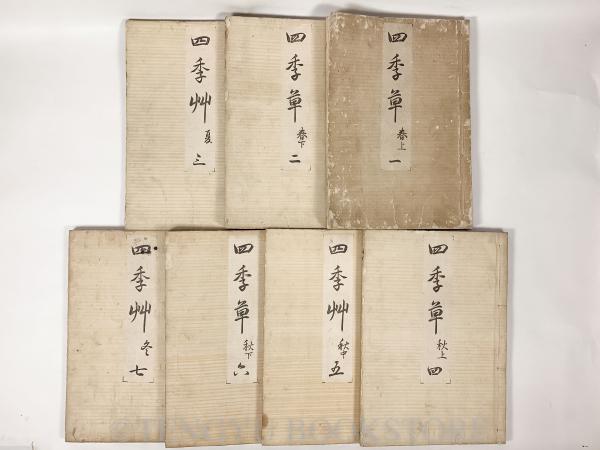 四季草 春上 一
四季草 春下 二
四季艸 夏 三
四季草 秋上 四
四季艸 秋中 五
四季草 秋下 六
四季艸 冬 七
©TENGYU BOOKSTORE